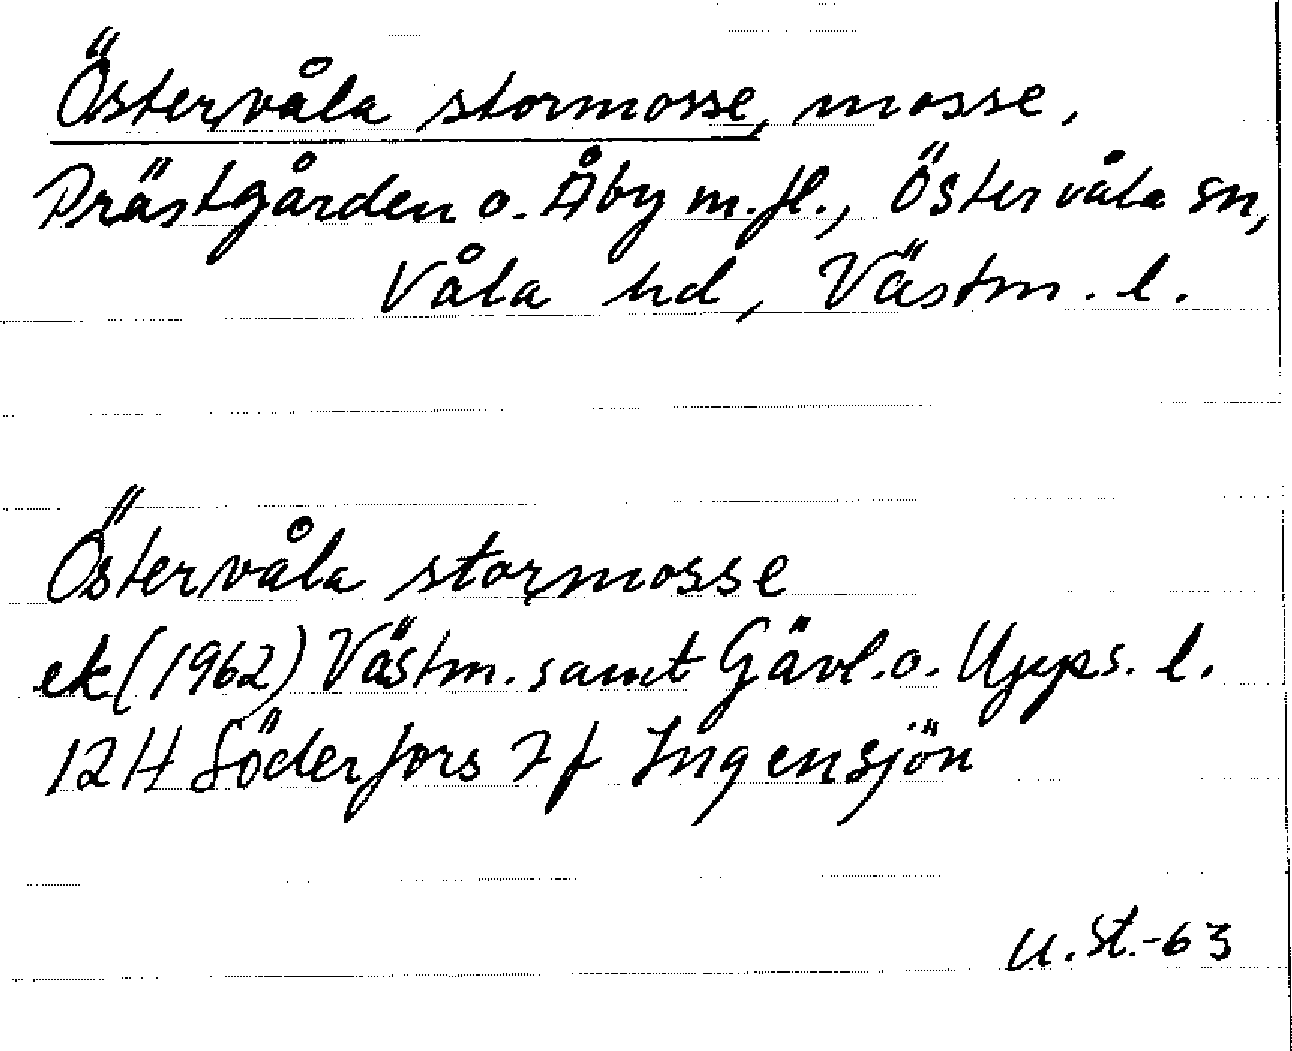 Östervåla stormosse, mosse,
Prästgården o. Åby m.fl., Östervåla sn,
Våla hd, Västm. l.
Östervåla stormosse
ek (1962) Västm. samt Gävl. o. Upps. l.
12H Söderfors 7f Ingensjön
U. St. -63